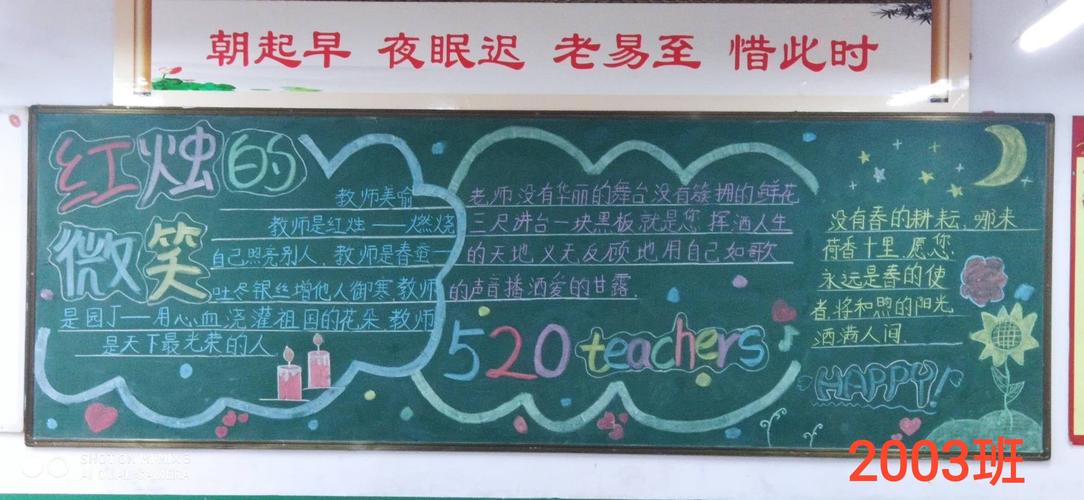 朝起早 夜眠迟 老易至 惜此时
红烛的
微笑
教师美喻
教师是红烛——燃烧
自己照亮别人,教师是春蚕—
吐冬银丝增他人御寒,教师
是园丁——用心血浇灌祖国的花朵 教师
是天下最光荣的人
老师,没有华丽的舞台没有簇拥的鲜花
三尺讲台一块黑板,就是您挥洒人生
的天地,义无反顾地用自己如歌
的声音播洒爱的甘露.
520 teachers
没有春的耕耘,哪来
荷香十里.愿您
永远是春的使
者,将和煦的阳光
洒满人间
HAPPY!
2003班
SHOT ON MI MIX 2S
AI DUAL CAMERA